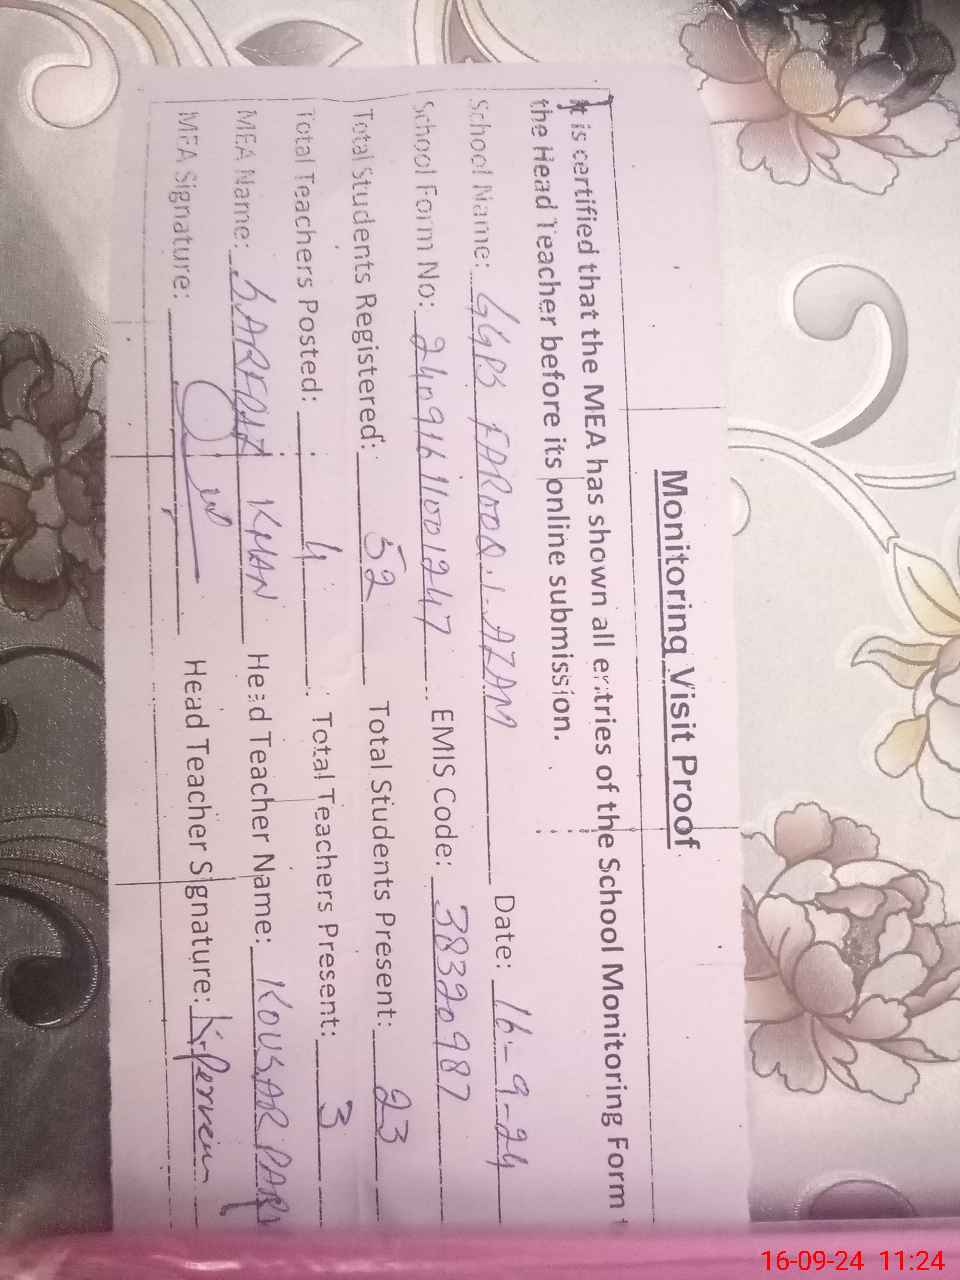 Monitoring Visit Proof
It is certified that the MEA has shown all entries of the School Monitoring Form
the Head Teacher before its online submission.
School Name: GGPS FAROOQ.I.AZAM Date: 16-9-24
School Form No: 2409161001247 EMIS Code: 38320987
Total Students Registered: 52 Total Students Present: 23
Total Teachers Posted: 4 Total Teachers Present: 3
MEA Name: KHAN Head Teacher Name: KOUSAR PARV
MEA Signature: Head Teacher Signature: K.Perveen
16-09-24 11:24